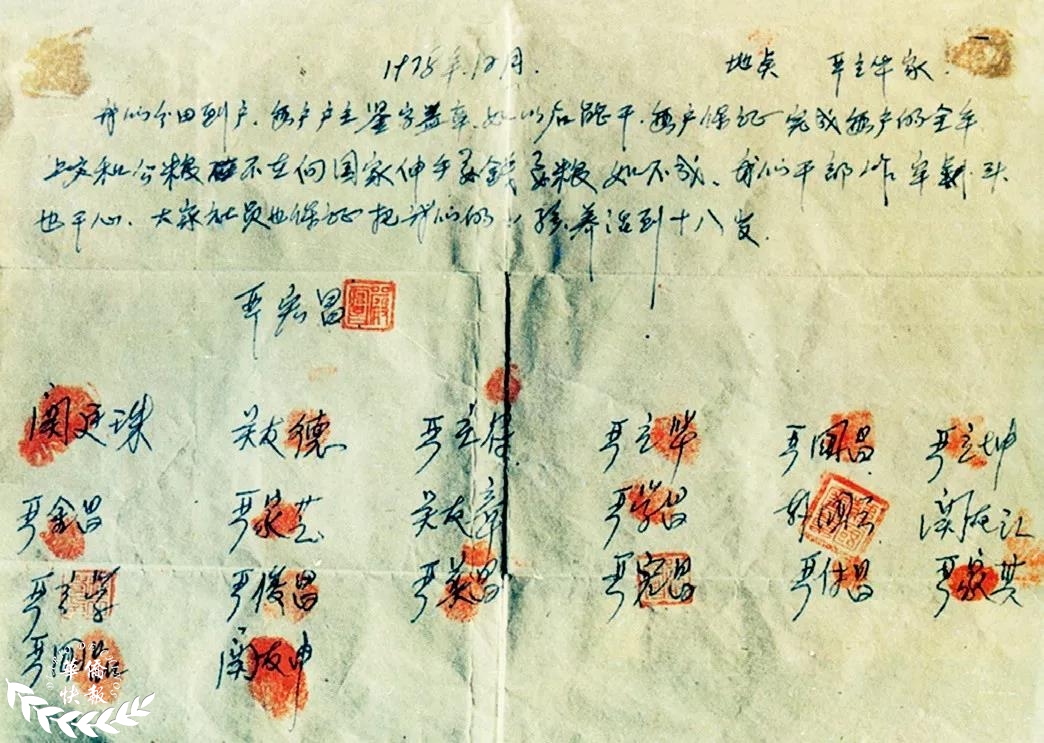 1978年12月. 地点 严立华家.
我们分田到户，每户户主签字盖章，如以后能干，每户保证完成每户的全年
上交和公粮 不在向国家伸手要钱要粮，如不成，我们干部作牢刹头
也干心，大家社员也保证把我们的小孩养活到十八岁.
严宏昌
关廷珠 关友德 严立符 严立华 严国昌 严立坤
严金昌 严家芝 关友章 严学昌 韩国云 关友江
严立学 严俊昌 严美昌 严宏昌 严付昌 严家其
严国品 关友申
华侨
快报